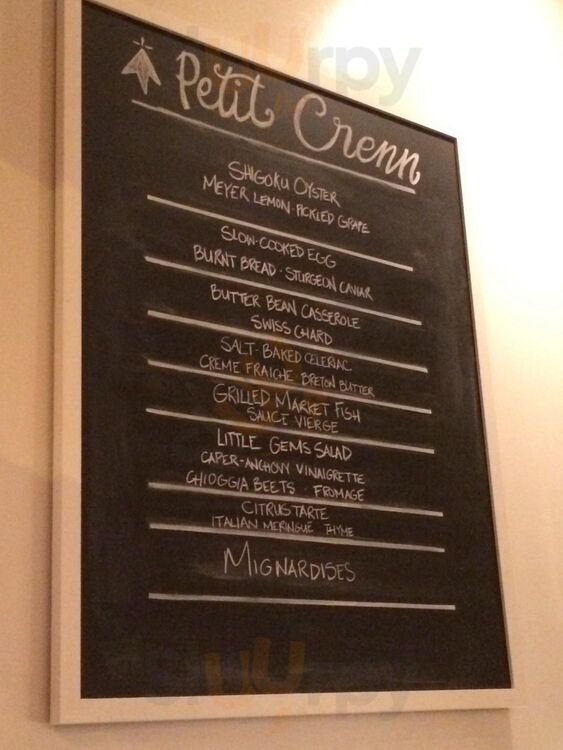 Petit Crenn
SHIGOKU OYSTER
MEYER LEMON · PICKLED GRAPE
SLOW-COOKED EGG
BURNT BREAD · STURGEON CAVIAR
BUTTER BEAN CASSEROLE
SWISS CHARD
SALT-BAKED CELERIAC
CREME FRAICHE BRETON BUTTER
GRILLED MARKET FISH
SAUCE VIERGE
LITTLE GEMS SALAD
CAPER-ANCHOVY VINAIGRETTE
CHIOGGIA BEETS · FROMAGE
CITRUS TARTE
ITALIAN MERINGUE THYME
MIGNARDISES